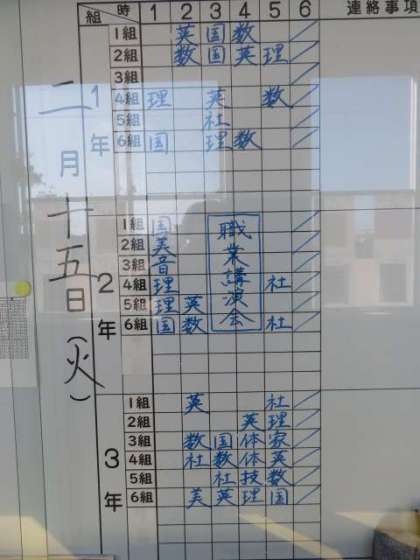 組 時 1 2 3 4 5 6 連絡事項
二月十五日(火)
1年
1組 英 国 数
2組 数 国 英 理
3組
4組 理 英 数
5組 社
6組 国 理 数
2年
職業講演会
1組 国
2組 美
3組 音
4組 理 社
5組 理 英
6組 国 数 社
3年
1組 英 社
2組 英 理
3組 数 国 体 家
4組 社 数 体 英
5組 社 技 数
6組 美 英 理 国